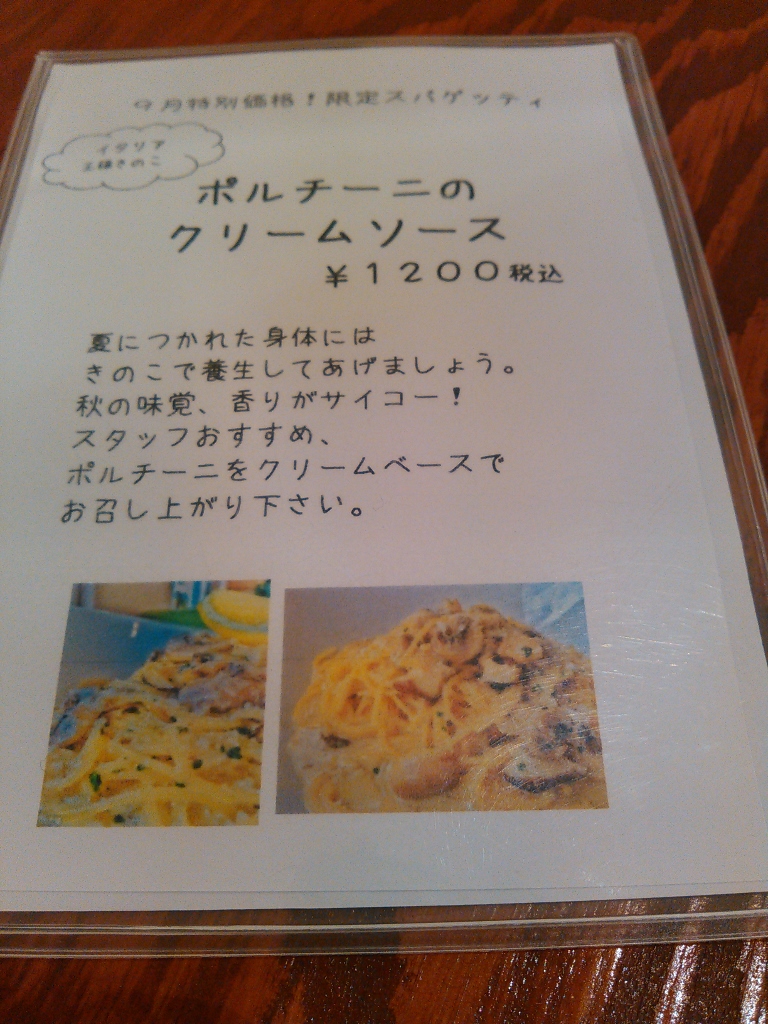 9月特別価格！限定スパゲッティ
イタリア
王様きのこ
ポルチーニの
クリームソース
￥１２００税込
夏につかれた身体には
きのこで養生してあげましょう。
秋の味覚、香りがサイコー！
スタッフおすすめ、
ポルチーニをクリームベースで
お召し上がり下さい。